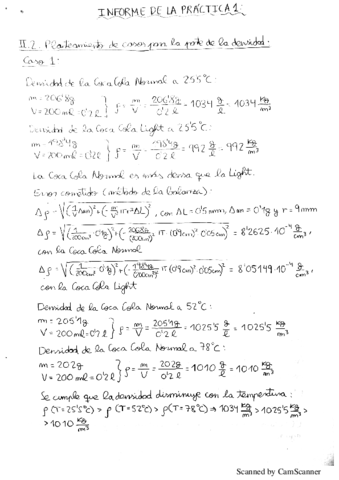 INFORME DE LA PRÁCTICA 1:
II.2. Planteamiento de casos para la parte de la densidad.
Caso 1:
Densidad de la Coca Cola Normal a 25'5°C:
m = 206'8g
V = 200 ml = 0'2 l } ρ = m/V = 206'8g/0'2 l = 1034 g/l = 1034 kg/m³
Densidad de la Coca Cola Light a 25'5°C:
m = 198'4g
V = 200 ml = 0'2 l } ρ = m/V = 198'4g/0'2 l = 992 g/l = 992 kg/m³
La Coca Cola Normal es más densa que la Light.
Error cometido (método de la balanza):
Δρ = √((1/V Δm)² + (-m/V² π r² ΔL)²), con ΔL = 0'5mm, Δm = 0'1g y r = 9mm
Δρ = √((1/200cm³ · 0'1g)² + (-206'8g/(200cm³)² · π (0'9cm)² · 0'05cm)²) = 8'2625·10⁻⁴ g/cm³,
con la Coca Cola Normal
Δρ = √((1/200cm³ · 0'1g)² + (-198'4g/(200cm³)² · π (0'9cm)² · 0'05cm)²) = 8'05149·10⁻⁴ g/cm³,
con la Coca Cola Light
Densidad de la Coca Cola Normal a 52°C:
m = 205'1g
V = 200 ml = 0'2 l } ρ = m/V = 205'1g/0'2 l = 1025'5 g/l = 1025'5 kg/m³
Densidad de la Coca Cola Normal a 78°C:
m = 202g
V = 200 ml = 0'2 l } ρ = m/V = 202g/0'2 l = 1010 g/l = 1010 kg/m³
Se cumple que la densidad disminuye con la temperatura:
ρ(T=25'5°C) > ρ(T=52°C) > ρ(T=78°C) ⇒ 1034 kg/m³ > 1025'5 kg/m³ >
> 1010 kg/m³
Scanned by CamScanner